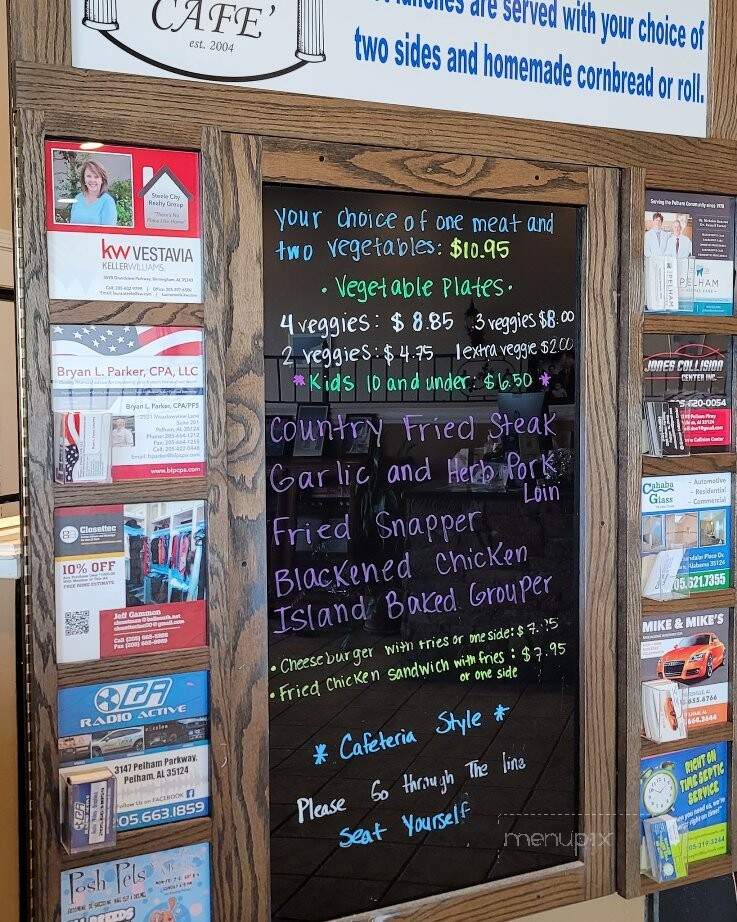 CAFE'
est. 2004
are served with your choice of
two sides and homemade cornbread or roll.
Your choice of one meat and
two vegetables: $10.95
• Vegetable Plates •
4 veggies: $8.85 3 veggies $8.00
2 veggies: $4.75 1 extra veggie $2.00
* Kids 10 and under: $6.50 *
Country Fried Steak
Garlic and Herb Pork
Loin
Fried Snapper
Blackened Chicken
Island Baked Grouper
• Cheeseburger with fries or one side: $
• Fried Chicken Sandwich with fries : $7.95
or one side
* Cafeteria Style *
Please Go Through The line
Seat Yourself
menupix
Steele City
Realty Group
kw VESTAVIA
KELLERWILLIAMS.
Bryan L. Parker, CPA, LLC
Bryan L. Parker, CPA/PFS
www.blpcpa.com
Closettec
10% OFF
FREE HOME ESTIMATE
Jeff Gammon
RADIO ACTIVE
3147 Pelham Parkway,
Pelham, AL 35124
Follow Us on FACEBOOK
05.663.1859
Posh Pets
Serving the Pelham Community since 1978
PELHAM
JONES COLLISION
CENTER INC.
620-0054
Cahaba
Glass
- Automotive
- Residential
- Commercial
Alabama 35124
05.621.7355
MIKE & MIKE'S
RIGHT ON
TIME SEPTIC
SERVICE